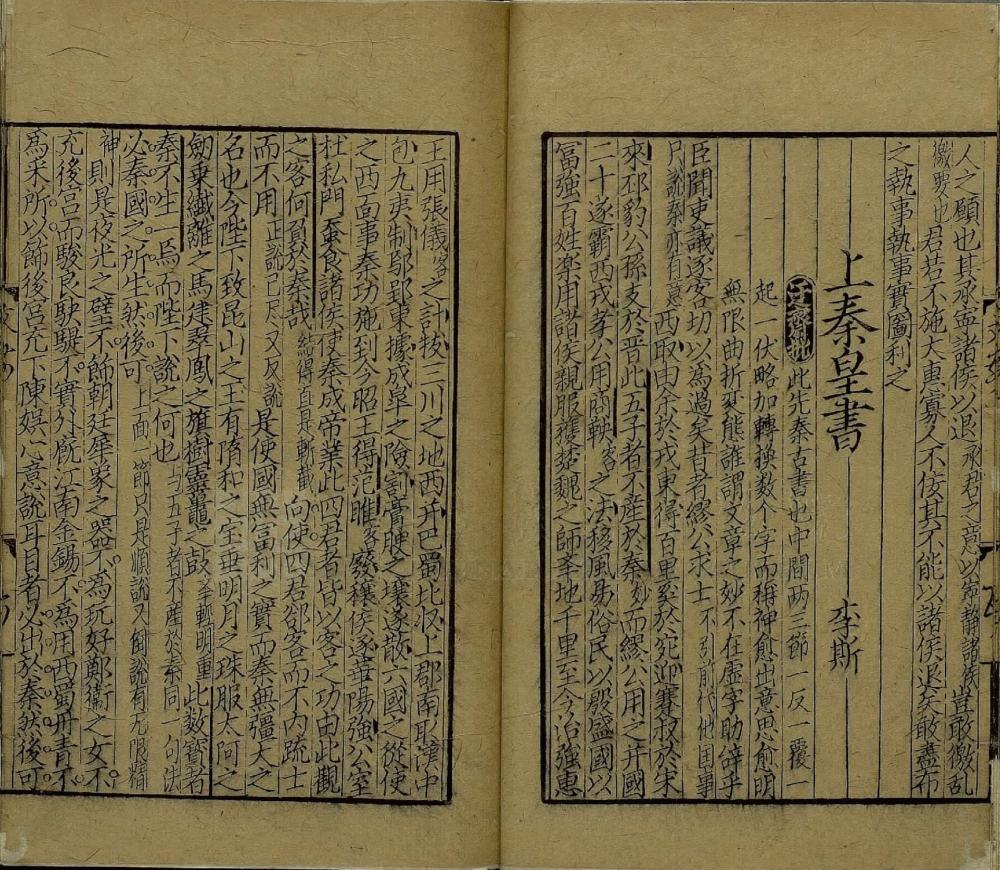 人之願也其承寧諸侯以退承君之意以寧靜諸侯豈敢徼亂
徼要也君若不施大惠寡人不佞其不能以諸侯退矣敢盡布
之執事執事實圖利之
上秦皇書
李斯
迂齋批此先秦古書也中間两三節一反一覆一
起一伏略加轉換数个字而精神愈出意思愈明
無限曲折変態誰謂文章之妙不在虛字助辞乎
臣聞吏議逐客切以為過矣昔者繆公求士不引前代他国事
只說秦亦有意西取由余於戎東得百里奚於宛迎蹇叔於宋
來邳豹公孫支於晋此五子者不產於秦妙而繆公用之并國
二十遂霸西戎孝公用商鞅客之法移風易俗民以殷盛國以
冨強百姓楽用諸侯親服獲楚魏之師举地千里至今治強惠
王用張儀客之計拔三川之地西并巴蜀北収上郡南取漢中
包九夷制鄢郢東據成皐之險割膏腴之壤遂散六國之從使
之西面事秦功施到今昭王得范雎客廢穰侯逐華陽強公室
杜私門蚕食諸侯使秦成帝業此四君者皆以客之功由此觀
之客何負於秦哉結得直是斬截向使四君郤客而不内疏士
而不用正說已尽又反說是使國無富利之實而秦無彊大之
名也今陛下致昆山之玉有隋和之宝垂明月之珠服太阿之
劒乗纎離之馬建翠鳳之旗樹靈鼉之鼓字斬明重此数寳者
秦不生一焉而陛下說之何也与五子者不產於秦同一句法
必秦國之所生然後可上面一節只是順說又倒說有无限精
神則是夜光之璧不飾朝廷犀象之器不為玩好鄭衞之女不
充後宫而駿良駃騠不實外厩江南金錫不為用西蜀丹青不
爲采所以飾後宮充下陳娯心意說耳目者必出於秦然後可